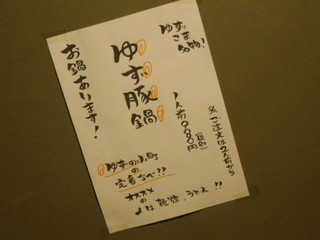 ゆずの
こま
名物！
ゆず豚鍋
お鍋あります！
1人前980円（税別）
※ご注文は2人前から
ゆずの小町
の
定番なべ！！
オススメ
の〆は雑炊、うどん！！